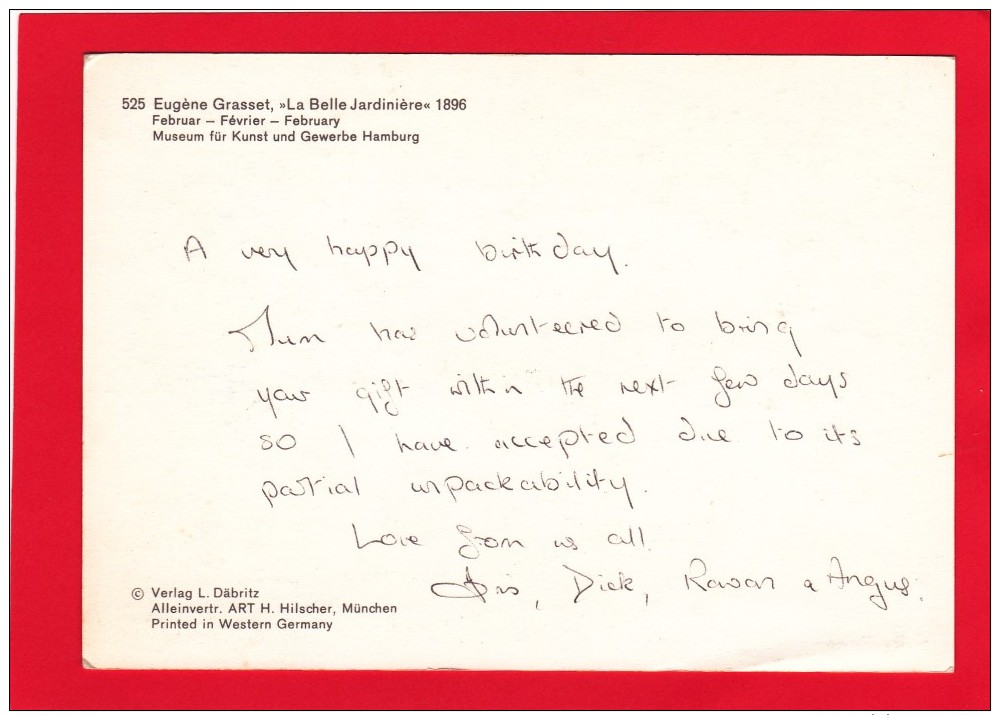 525 Eugène Grasset, »La Belle Jardinière« 1896
Februar – Février – February
Museum für Kunst und Gewerbe Hamburg
A very happy birthday.
Mum has volunteered to bring
your gift within the next few days
so I have accepted due to its
partial unpackability.
Love from us all.
Iris, Dick, Rowan & Angus.
© Verlag L. Däbritz
Alleinvertr. ART H. Hilscher, München
Printed in Western Germany